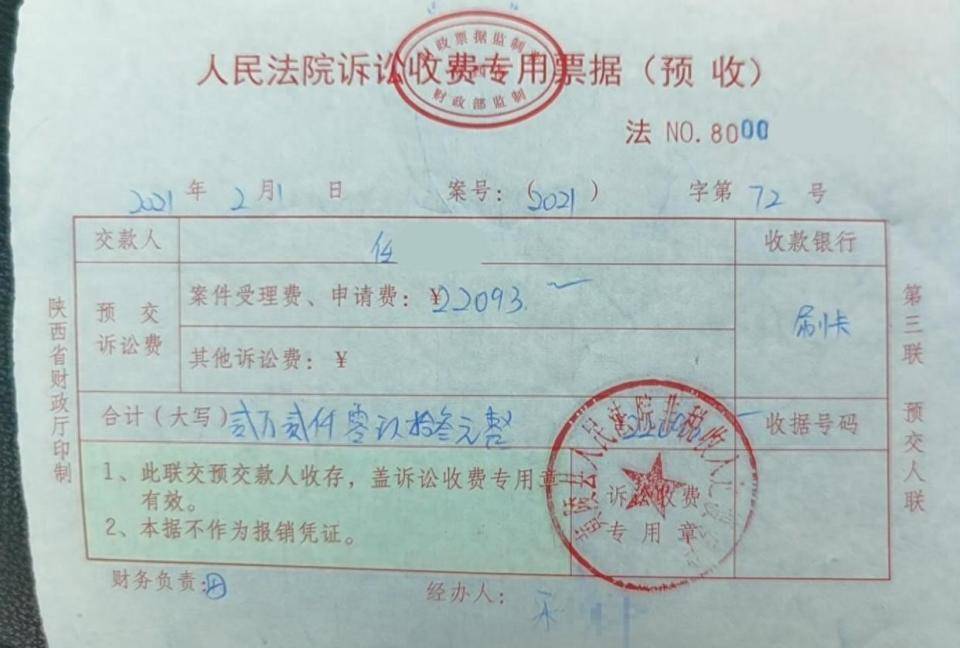 人民法院诉讼收费专用票据（预 收）
财政部监制
法 NO.8000
2021 年 2 月 1 日 案号：（2021） 字第 72 号
交款人 任 收款银行
预 交 诉讼费
案件受理费、申请费：¥22093.
刷卡
其他诉讼费：¥
合计（大写）贰万贰仟零玖拾叁元整 收据号码
1、此联交预交款人收存，盖诉讼收费专用章有效。
2、本据不作为报销凭证。
诉讼收费
专用章
财务负责：
经办人：
陕西省财政厅印制
第三联 预交人联